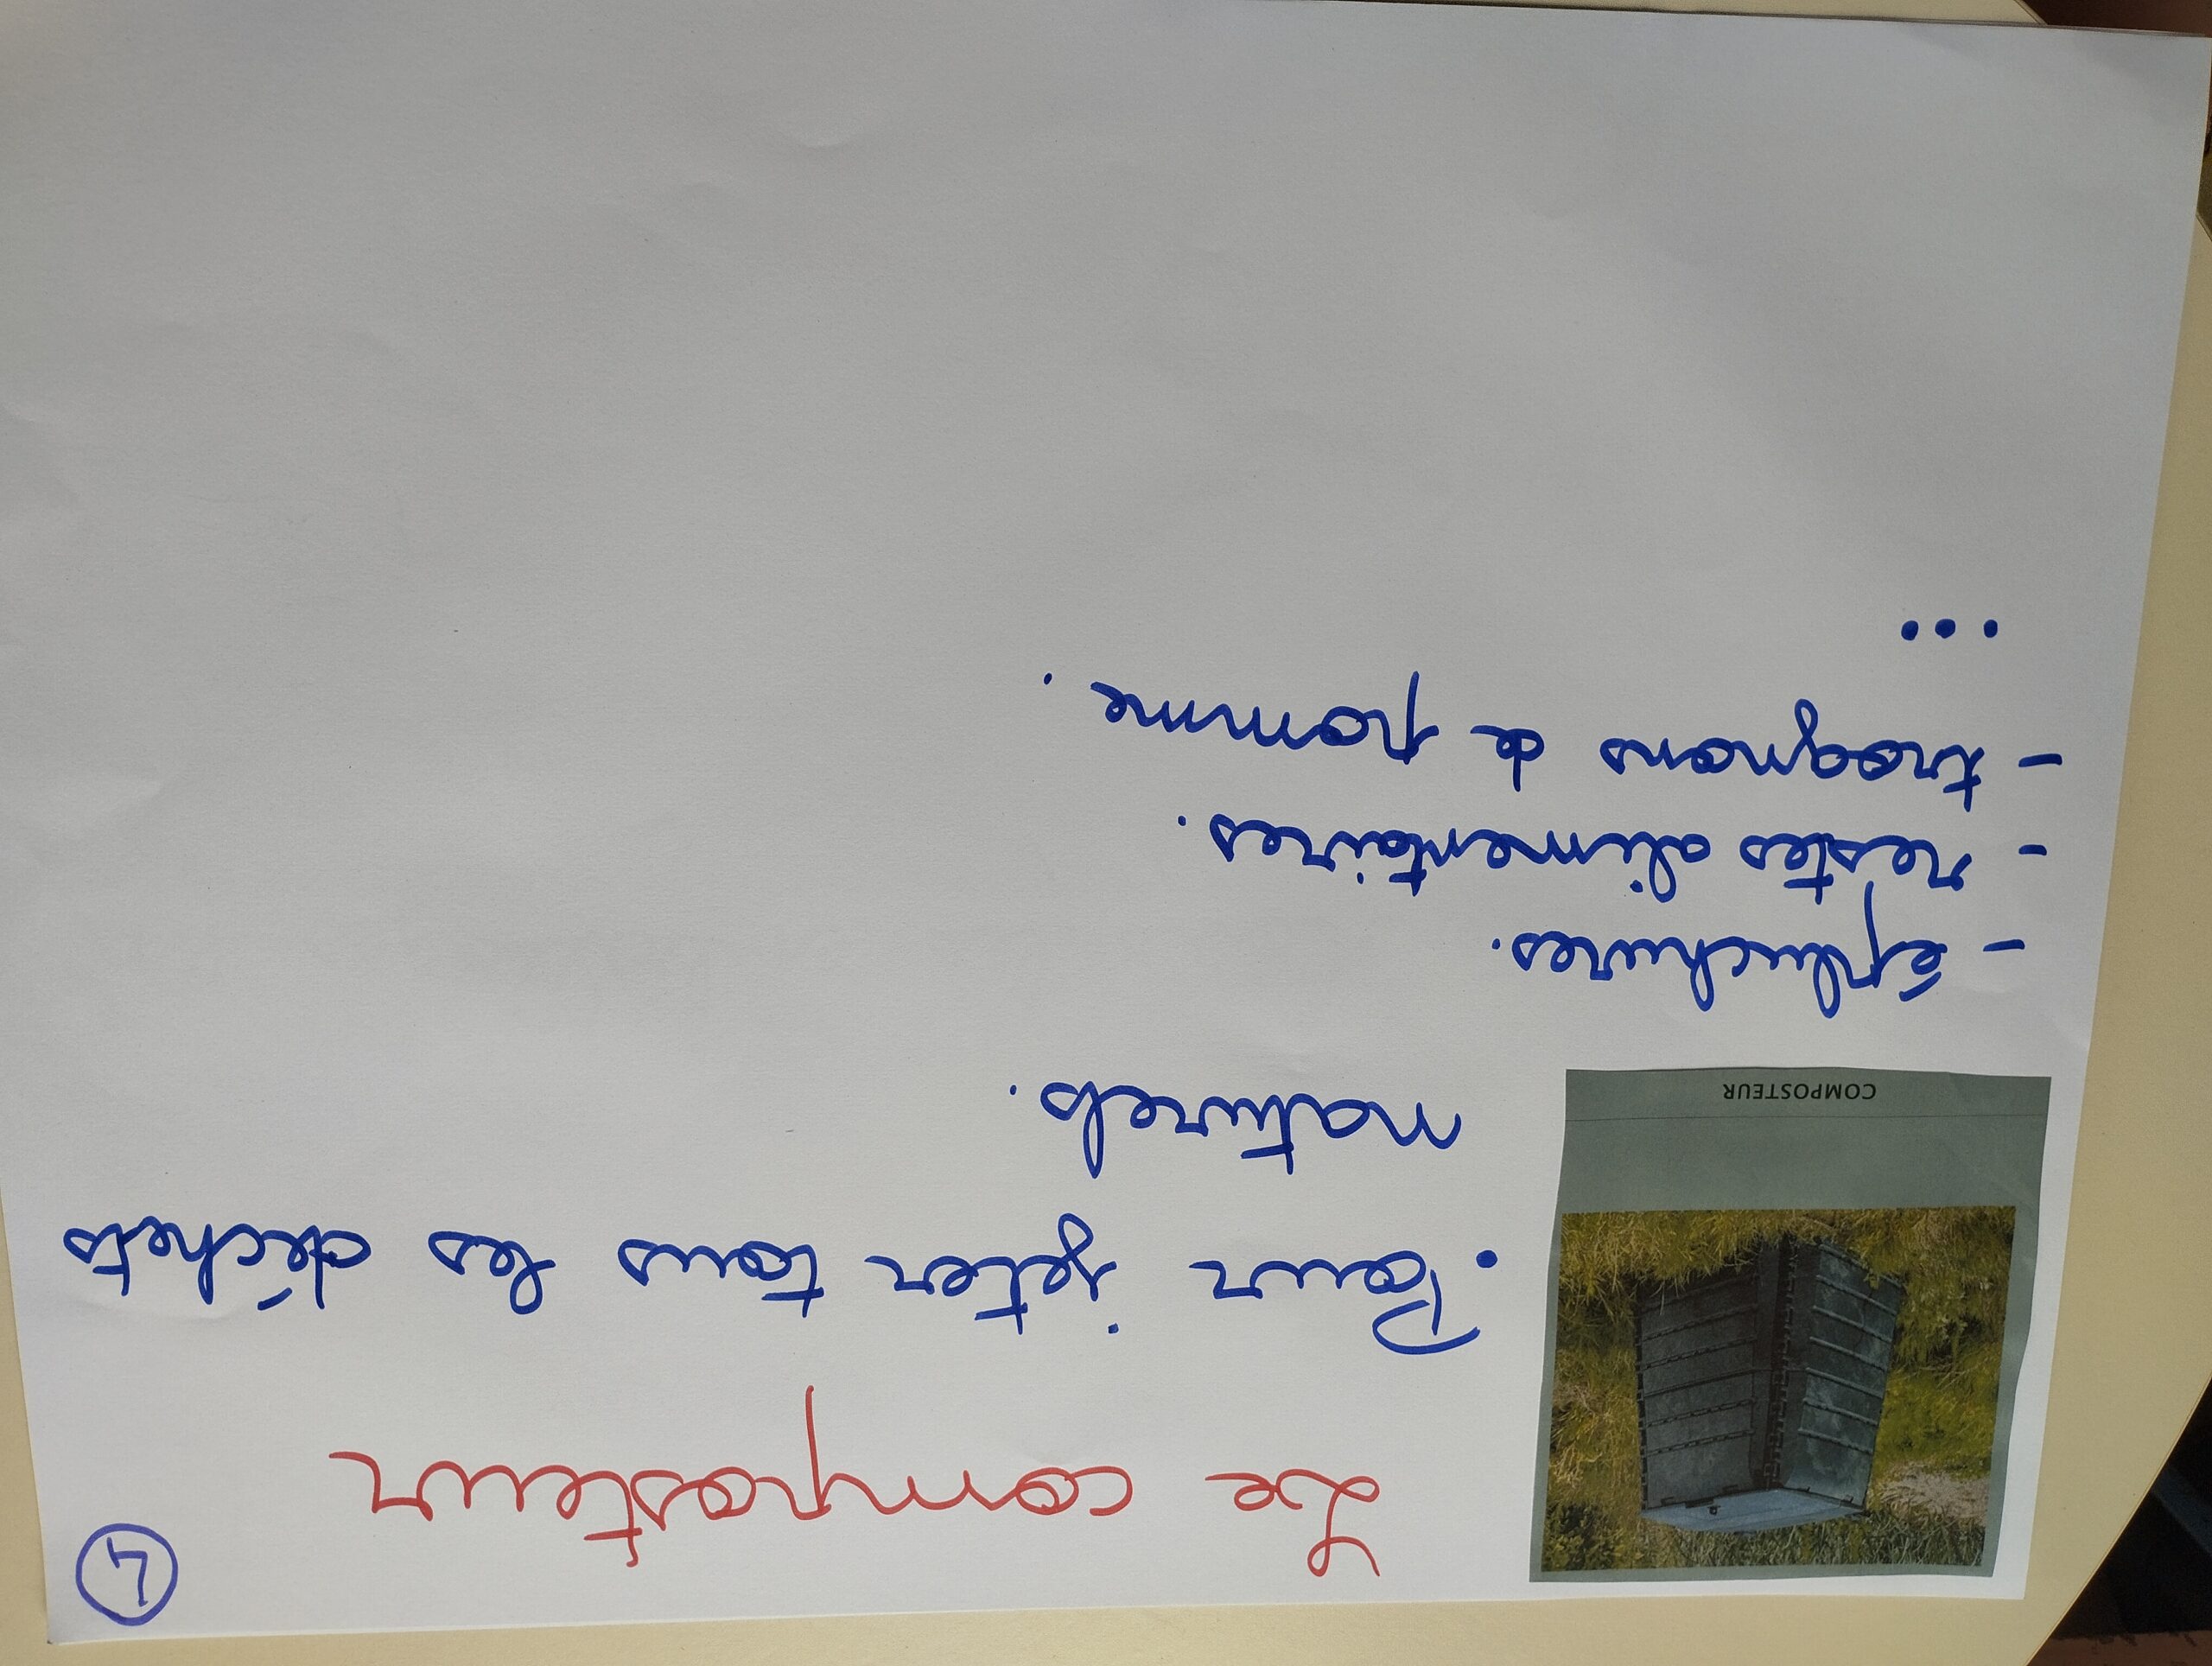 Le composteur
7
• Pour jeter tous les déchets
naturels.
COMPOSTEUR
- épluchures.
- restes alimentaires.
- trognons de pomme.
...